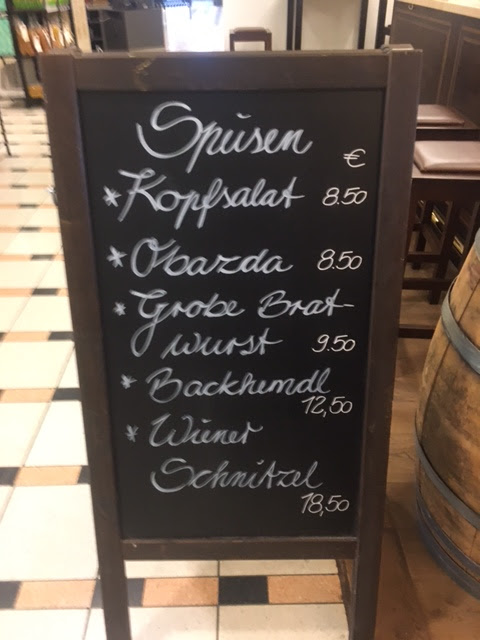 Speisen
€
* Kopfsalat 8.50
* Obazda 8.50
* Grobe Brat-
wurst 9.50
* Backhendl
12,50
* Wiener
Schnitzel
18,50